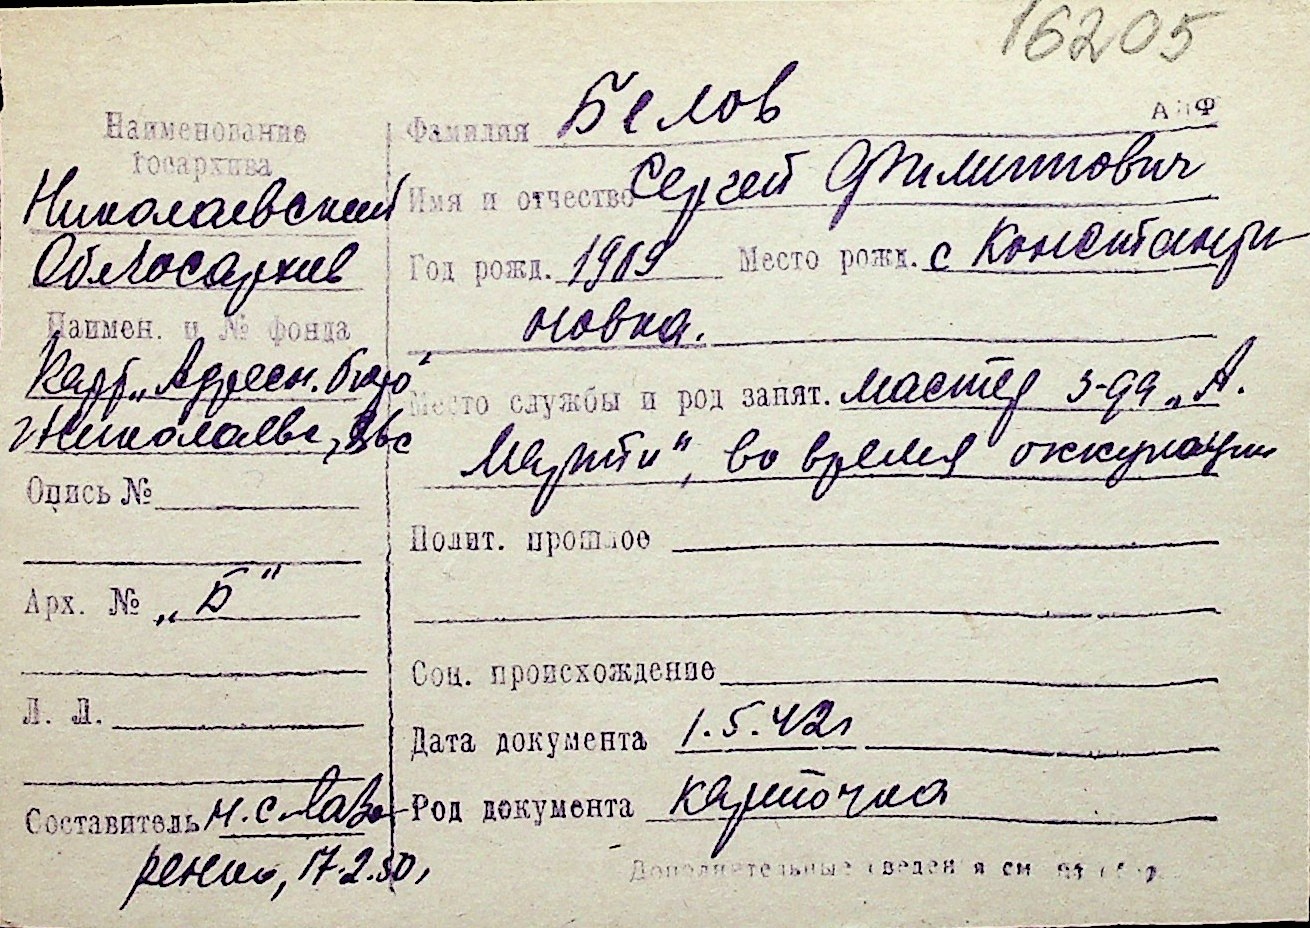 16205
АИФ
Наименование
госархива
Николаевский
Облгосархив
Наимен. и № фонда
Карт. „Адресн. бюро"
г Николаев,
Опись №
Арх. № „Б"
Л. Л.
Составитель Н. С. Лавре-
ренко, 17.2.50,
Фамилия Белов
Имя и отчество Сергей Филиппович
Год рожд. 1909 Место рожд. с Константи
новка.
Место службы и род занят. мастер з-да „А.
Марти", во время оккупации
Полит. прошлое
Соц. происхождение
Дата документа 1.5.42г
Род документа карточка
Дополнительные сведения см на об